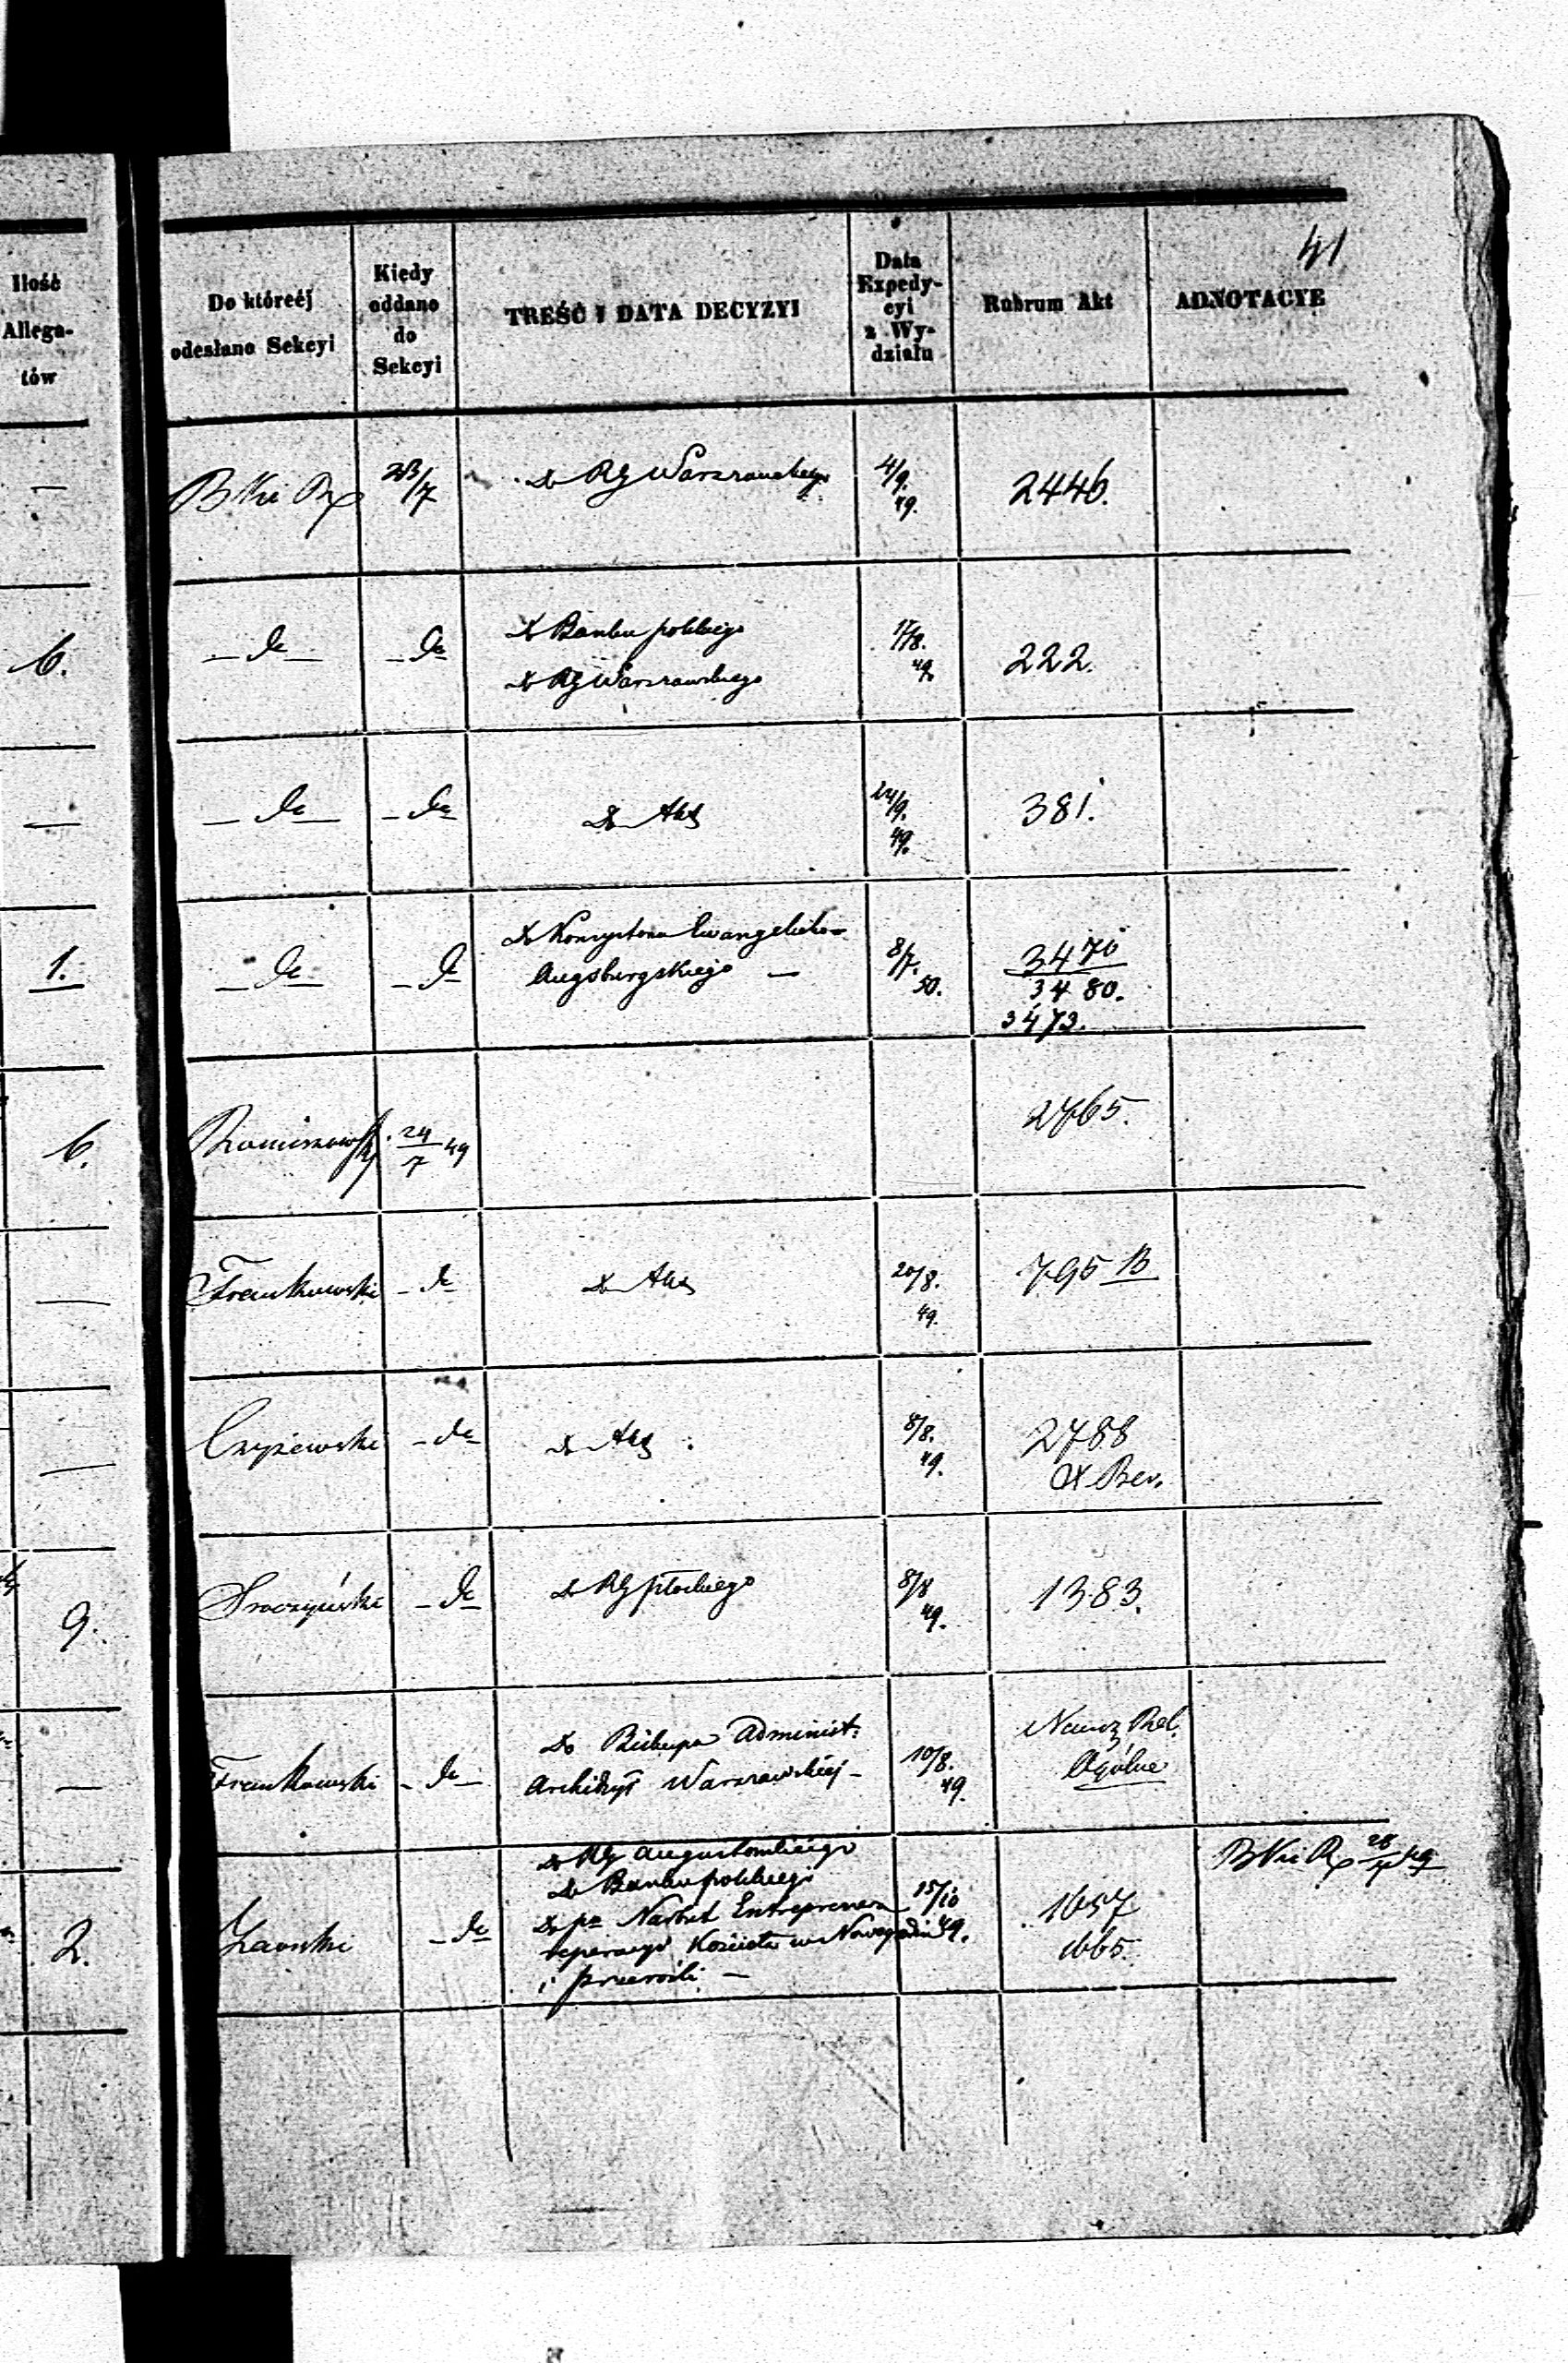 41
Ilość
Allega-
tów
Do któreéj
odesłano Sekcyi
Kiedy
oddano
do
Sekcyi
TREŚĆ I DATA DECYZYI
Data
Expedy-
cyi
z Wy-
działu
Rubrum Akt
ADNOTACYE
—
23/7
Do RG Warszawskiego
4/9.
49.
2446.
6.
— do —
— do
Do Banku polskiego
Do RG Warszawskiego
49.
222.
—
— do —
— do
Do Akt
24/9.
49.
381.
1.
— do —
— do
Do Konsystorza Ewangelicko-
Augsburgskiego —
8/7.
50.
3470
3480.
3473.
6.
24/7 49
2765.
—
Frankowski
— do
Do Akt
20/8.
49.
795 B
—
Czyżewski
— do
Do Akt
8/8.
49.
2788
9.
Sroczyński
— do
Do RG płockiego
8/8
49.
1383.
—
Frankowski
— do —
Do Biskupa Administ:
Archidyec Warszawskiéj —
10/8.
49.
Ogólne
2.
— do
Do RG Augustowskiego
Do Banku polskiego
Do pa Narbut Entreprenera
Kościoła w
i
15/10
49.
1657
1665.